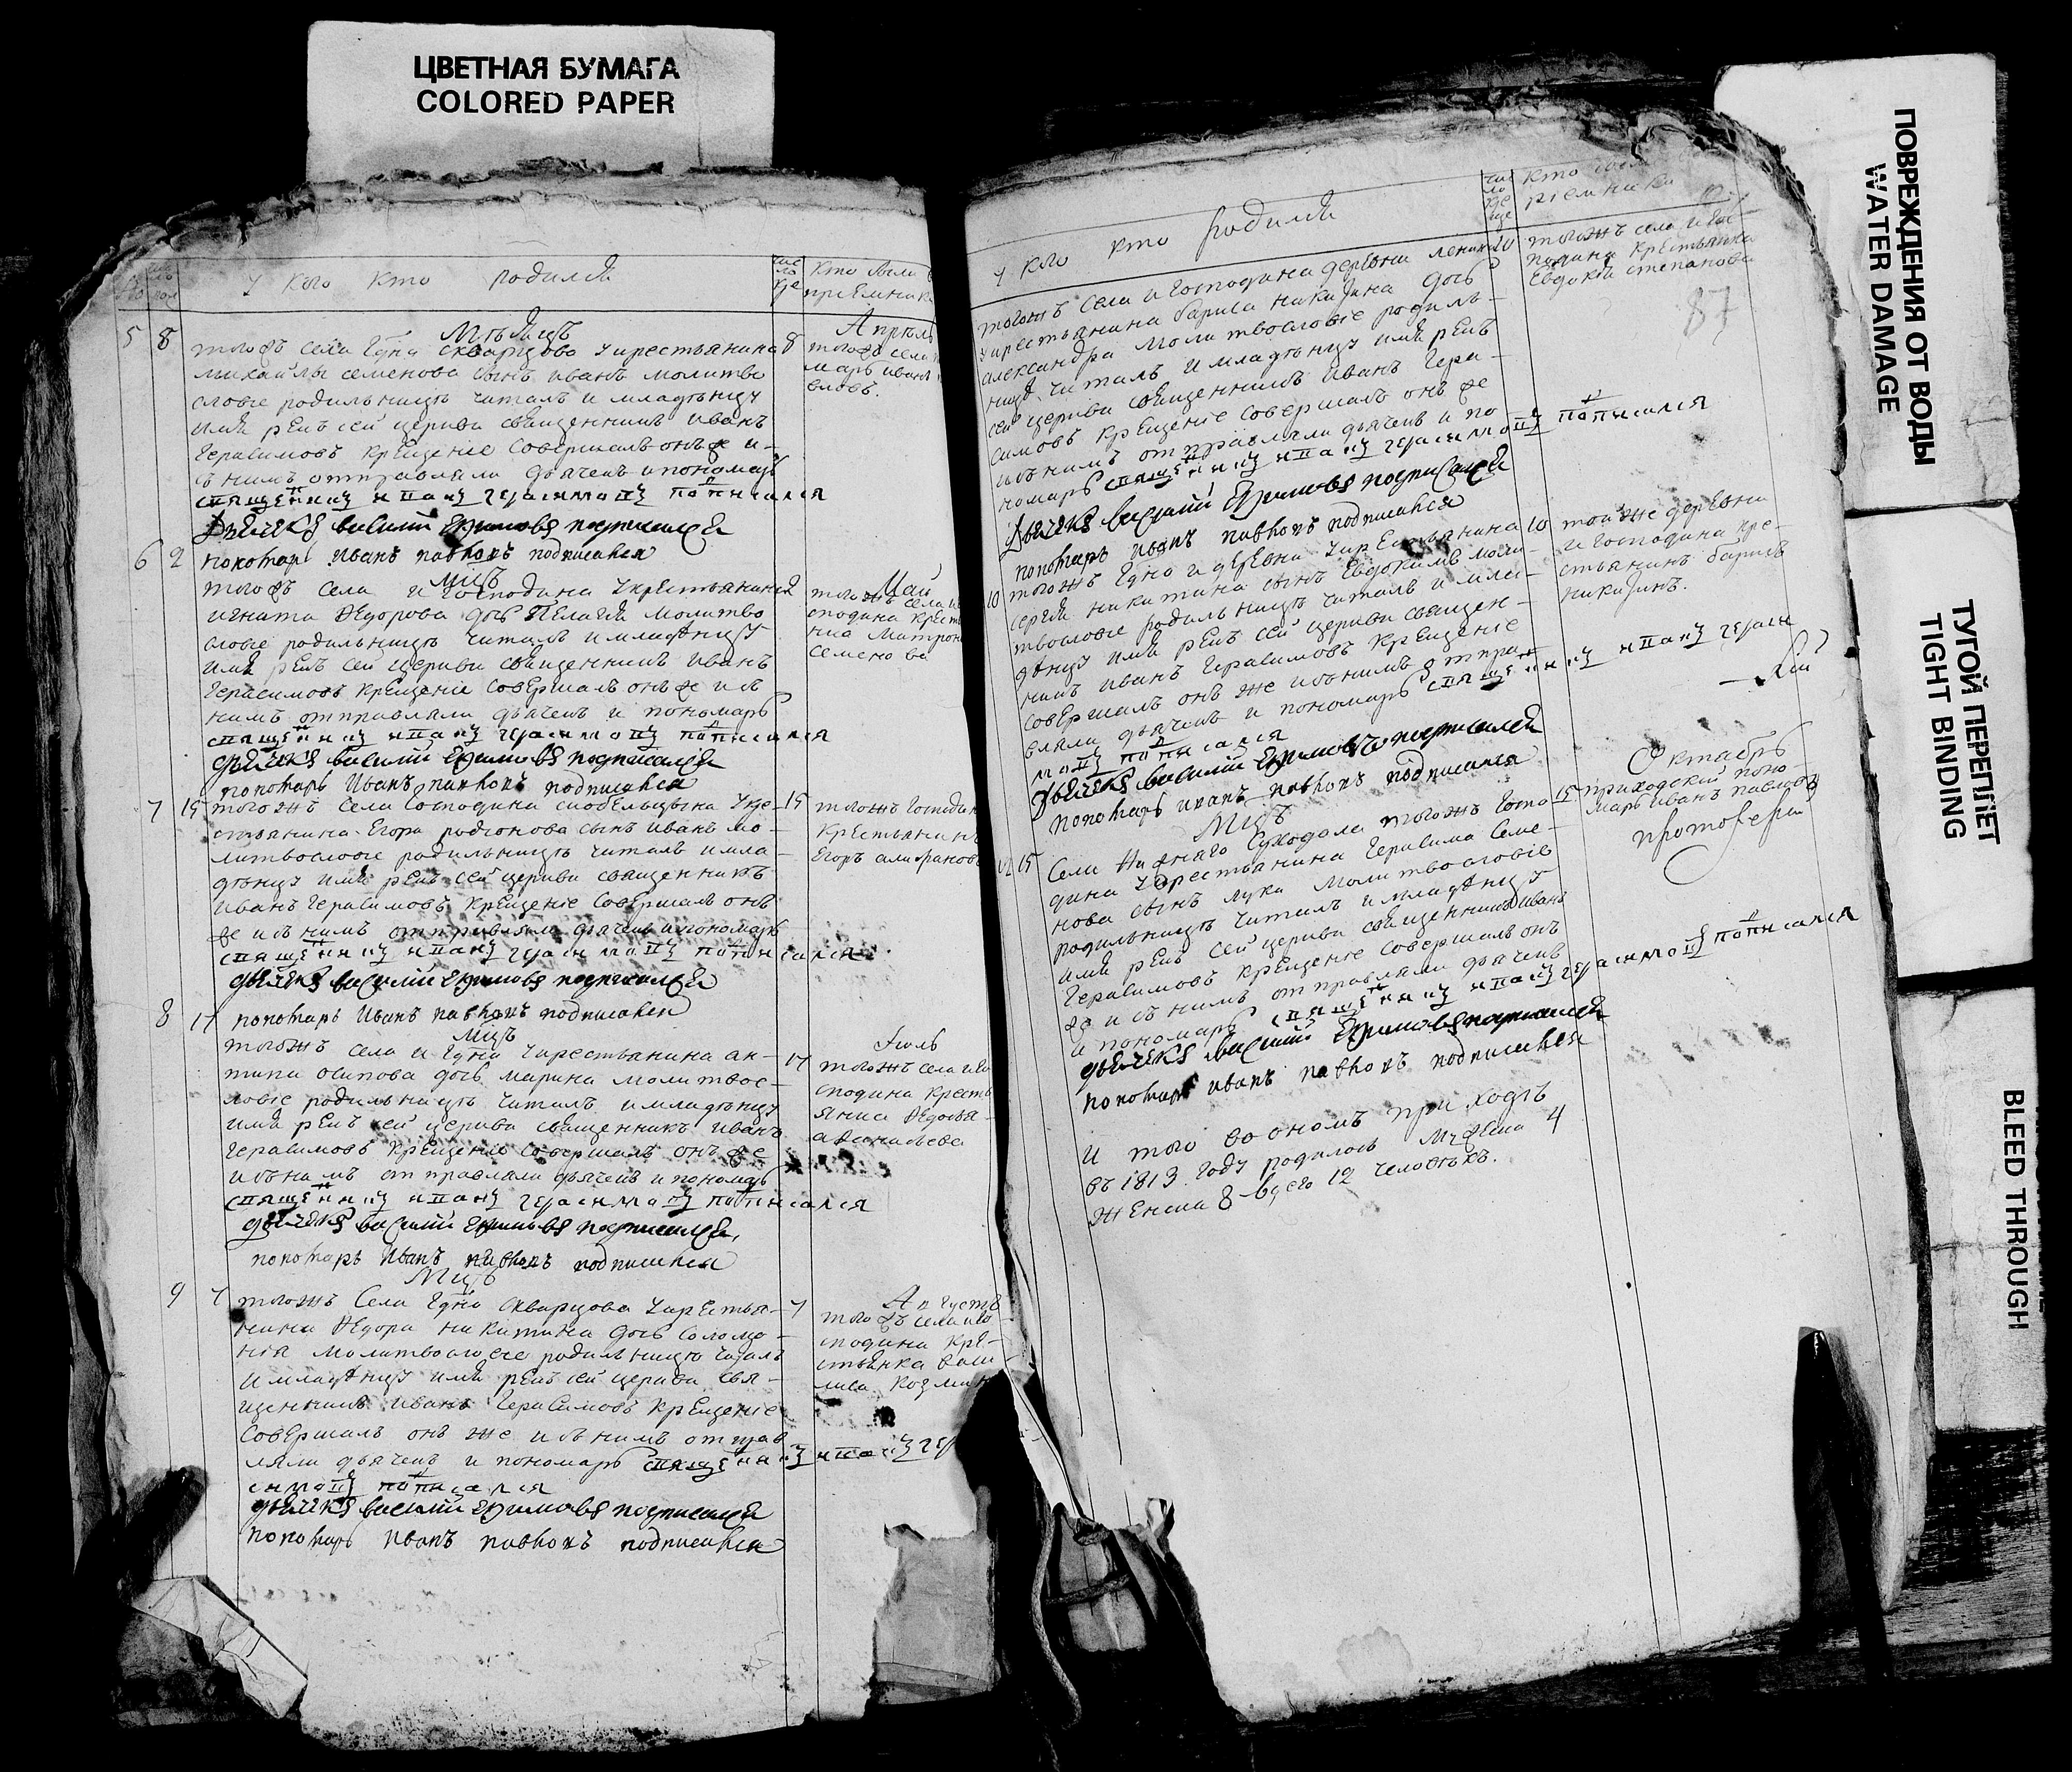 ЦВЕТНАЯ БУМАГА
COLORED PAPER
У кого кто родился
Кто были
приемники
Мѣсяцъ
Апрѣль
5 8
тогожъ села Гдна скварцова у крестьянина 8
михайлы семенова сынъ иванъ молитво
словіе родильницѣ читалъ и младѣнцу
имя рекъ сей церкви священникъ иванъ
Герасимовъ крещеніе совершалъ онъ же и
с нимъ отправляли дьячекъ и пономарь
священникъ иванъ герасимовъ подписался
Дьячекъ василий Ефимовъ подписался
пономарь иванъ павловъ подписался
тогожъ села
марь иванъ
вловъ.
6 2
Мцъ
Май
тогожъ села и господина у крестьянина 2
игната Ѳедорова дочь Пелагея молитво
словіе родильницѣ читалъ и младѣнцу
имя рекъ сей церкви священникъ иванъ
Герасимовъ крещеніе совершалъ онъ же и съ
нимъ отправляли дьячекъ и пономарь
священникъ иванъ герасимовъ подписался
дьячекъ василий Ефимовъ подписался
пономарь иванъ павловъ подписался
тогожъ села и
сподина крест
нка Матрона
семенова
7 15
тогожъ села господина у кре- 15
стьянина Егора родионова сынъ иванъ мо-
литвословіе родильницѣ читалъ и мла-
дѣнцу имя рекъ сей церкви священникъ
иванъ Герасимовъ крещеніе совершалъ онъ
же и съ нимъ отправляли дьячекъ и пономарь
священникъ иванъ герасимовъ подписался
дьячекъ василий Ефимовъ подписался
пономарь иванъ павловъ подписался
тогожъ господин
крестьянинъ
Егоръ
8 17
Мцъ
Іюль
тогожъ села и Гдна у крестьянина ан- 17
типа осипова дочь марина молитвос-
ловіе родильницѣ читалъ и младѣнцу
имя рекъ сей церкви священникъ иванъ
Герасимовъ крещеніе совершалъ онъ же
и съ нимъ отправляли дьячекъ и пономарь
священникъ иванъ герасимовъ подписался
дьячекъ василий Ефимовъ подписался
пономарь иванъ павловъ подписался
тогожъ села и го
сподина кресть
янка Ѳедосья
9 7
Мцъ
Августъ
тогожъ села Гдна скварцова у крестья- 7
нина Ѳедора никитина дочь соломо-
нія молитвословіе родильницѣ читалъ
и младѣнцу имя рекъ сей церкви свя-
щенникъ иванъ Герасимовъ крещеніе
совершалъ онъ же и съ нимъ отправ
ляли дьячекъ и пономарь священникъ иванъ гера
симовъ подписался
дьячекъ василий Ефимовъ подписался
пономарь иванъ павловъ подписался
тогожъ села и го
сподина кре-
стьянка васи-
лиса козмин
У кого кто родился
кто были
приемники
87
тогожъ села и господина деревни 20
у крестьянина бориса никитина дочь
александра молитвословіе родиль-
ницѣ читалъ и младѣнцу имя рекъ
сей церкви священникъ иванъ Гера-
симовъ крещеніе совершалъ онъ же
и съ нимъ отправляли дьячекъ и по
номарь священникъ иванъ герасимовъ подписался
Дьячекъ василий Ефимовъ подписался
пономарь иванъ павловъ подписался
тогожъ села и гос-
подина крестьянка
Евдокия степанова
10
тогожъ Гдна и деревни у крестьянина 10
сергея никитина сынъ Евдокимъ моли-
твословіе родильницѣ читалъ и мла-
дѣнцу имя рекъ сей церкви священ-
никъ иванъ Герасимовъ крещеніе
совершалъ онъ же и съ нимъ отпра-
вляли дьячекъ и пономарь священникъ иванъ гераси
мовъ подписался
Дьячекъ василий Ефимовъ подписался
пономарь иванъ павловъ подписался
той же деревни
и господина кре-
стьянинъ борисъ
никитинъ.
Мцъ
Октябрь
12 15
Села Нижняго Суходола тогожъ госпо 15
дина у крестьянина Герасима Семе-
нова сынъ лука молитвословіе
родильницѣ читалъ и младѣнцу
имя рекъ сей церкви священникъ иванъ
Герасимовъ крещеніе совершалъ онъ
же и съ нимъ отправляли дьячекъ
и пономарь священникъ иванъ герасимовъ подписался
дьячекъ василий Ефимовъ подписался
пономарь иванъ павловъ подписался
приходский поно-
марь иванъ павловъ
протоерей
И того во ономъ приходѣ
въ 1813 году родилось мужеска 4
женска 8 всего 12 человѣкъ.
ПОВРЕЖДЕНИЯ ОТ ВОДЫ
WATER DAMAGE
ТУГОЙ ПЕРЕПЛЁТ
TIGHT BINDING
BLEED THROUGH